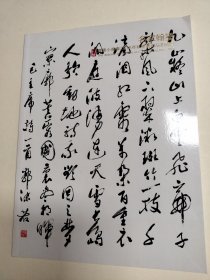 九嶷山上白云飞帝子
乘风下翠微斑竹一枝千
滴泪红霞万朵百重衣
洞庭波涌连天雪长岛
人歌动地诗我欲因之梦
寥廓芙蓉国里尽朝晖
毛主席诗一首 郭沫若